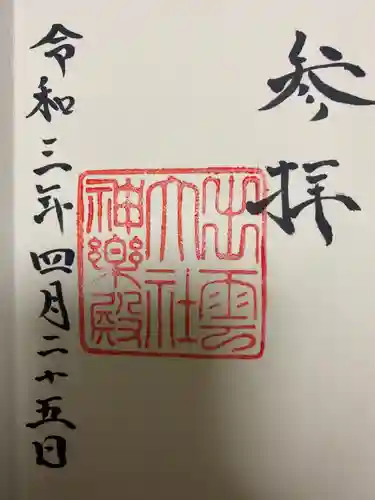 参拝
出雲
大社
神楽殿
令和三年四月二十五日